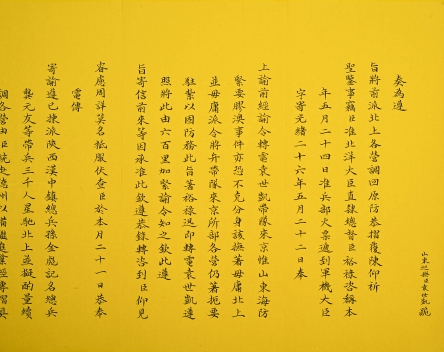 山東巡撫臣袁世凱跪
奏為遵
旨將前派北上各營調回原防恭摺覆陳仰祈
聖鑒事竊臣准北洋大臣直隸總督臣裕祿咨稱本
年五月二十四日准兵部火票遞到軍機大臣
字寄光緒二十六年五月二十二日奉
上諭前經諭令轉電袁世凱帶隊來京惟山東海防
緊要膠澳事件亦恐不克分身該撫著毋庸北上
並毋庸派令將弁帶隊來京所部各營仍著扼要
駐紮以固防務此旨著裕祿迅即轉電袁世凱遵
照將此由六百里加緊諭令知之欽此遵
旨寄信前來等因承准此欽遵恭錄轉咨到臣仰見
睿慮周詳莫名祗服伏查臣於本月二十一日恭奉
電傳
寄諭遵已揀派陝西漢中鎮總兵孫金彪記名總兵
龔元友等帶兵三千人星馳北上並擬酌量續